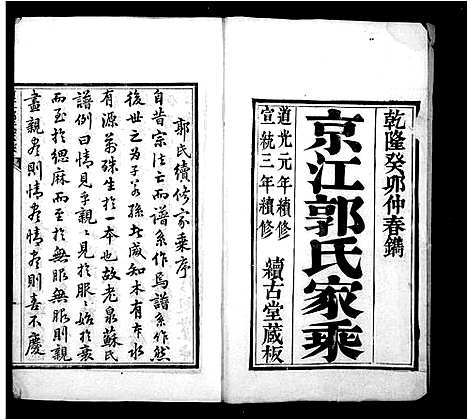 乾隆癸卯仲春鐫
京江郭氏家乘
道光元年續修
宣統三年續修
續古堂藏板
郭氏續修家乘序
自昔宗法亡而譜系作焉譜系作然
後世之為子若孫者咸知本有本水
有源萬殊生於一本也故老泉蘇氏
譜例曰情見乎親親見於服服始於衰
而至於緦麻而至於無服無服則親
盡親盡則情盡情盡則喜不慶